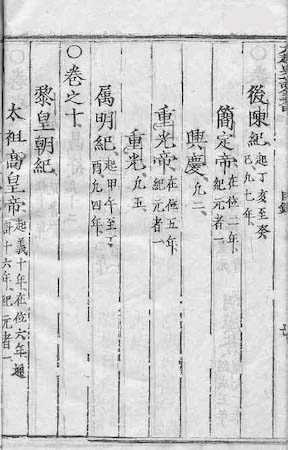 後陳紀 起丁亥至癸巳凡七年
簡定帝 在位二年紀元者一
興慶 凡二
重光帝 在位五年紀元者一
重光 凡五
属明紀 起甲午至丁酉凡四年
○卷之十
黎皇朝紀
太祖高皇帝 起義十年在位六年通計十六年紀元者一